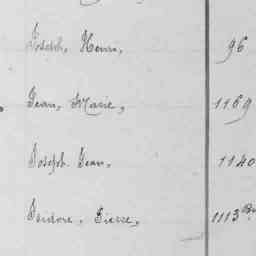 Joseph, Henri, 96
Jean, Marie, 1169
Joseph Jean, 1140
Isidore, Pierre, 1113 Bis